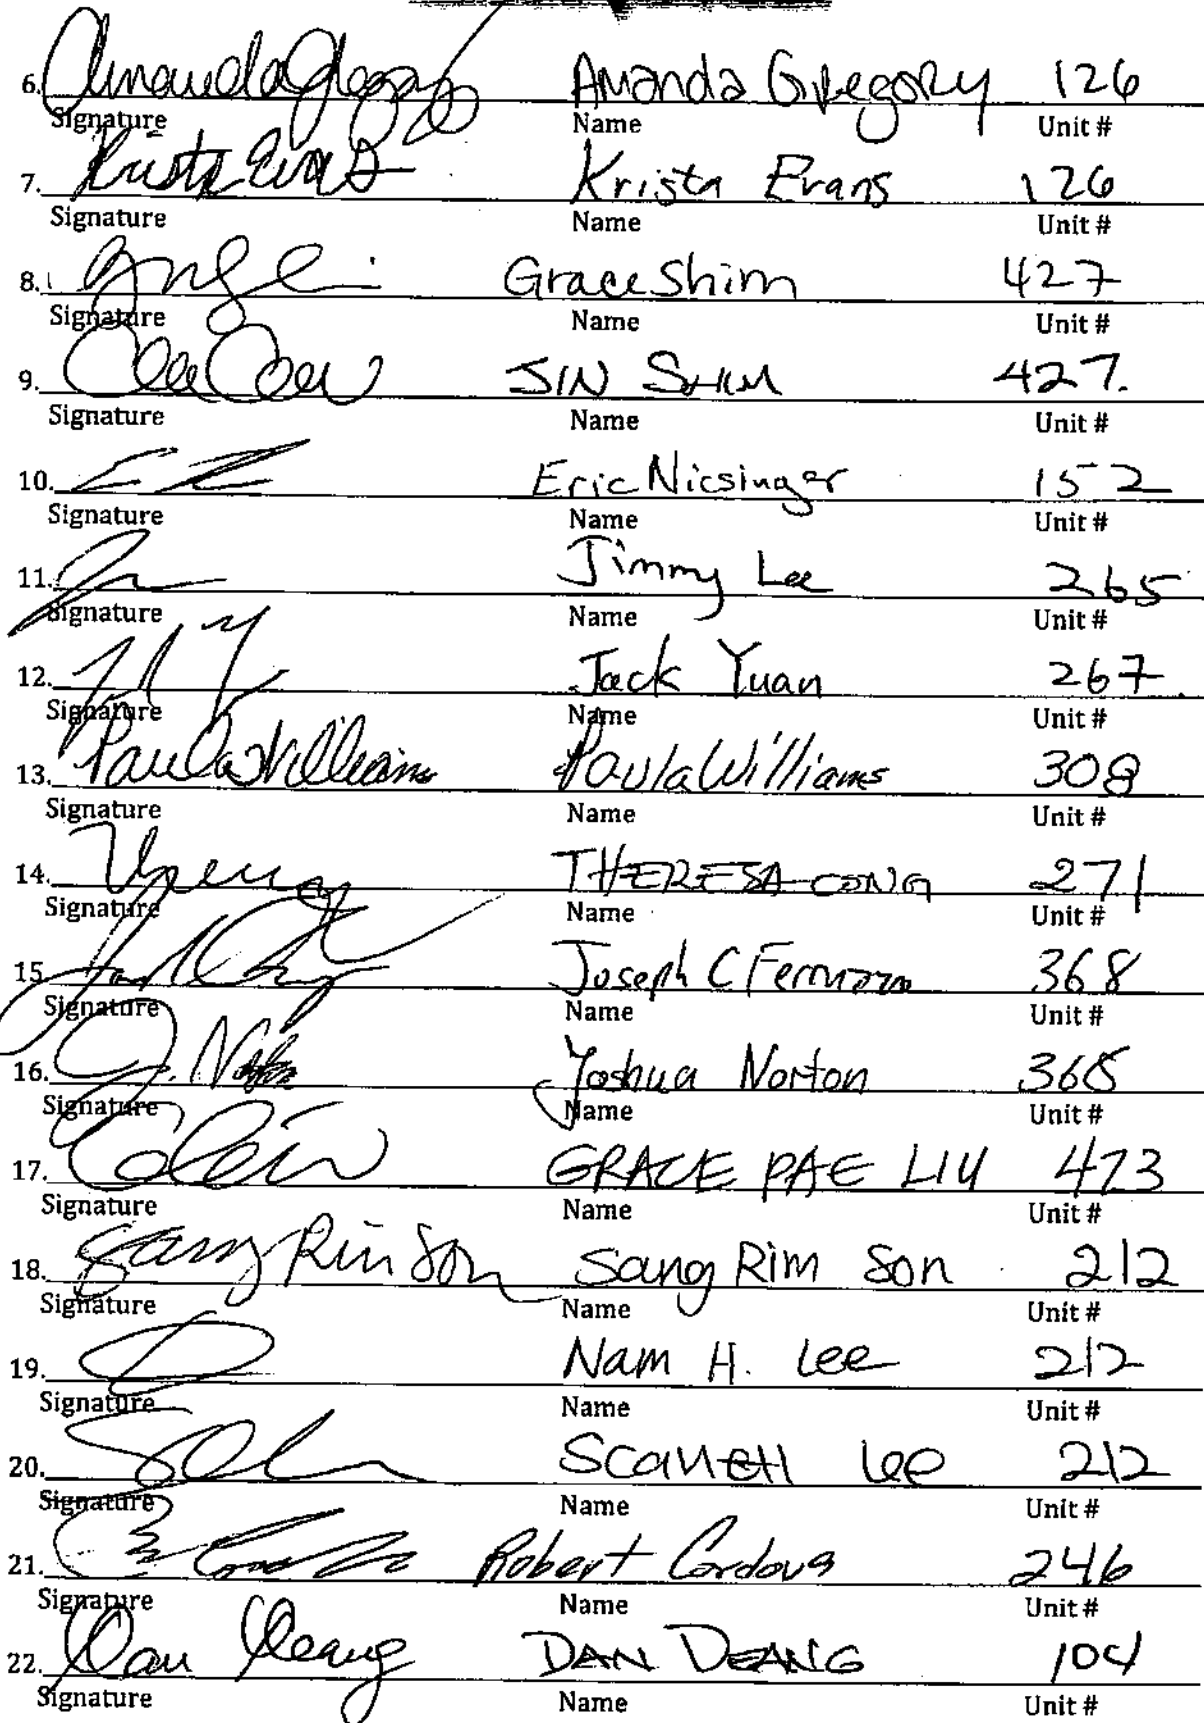 6. Amanda Gregory Amanda Gregory 126
Signature Name Unit #
7. Krista Evans Krista Evans 126
Signature Name Unit #
8. Grace Shim 427
Signature Name Unit #
9. JIN SHIM 427.
Signature Name Unit #
10. Eric Nicsinger 152
Signature Name Unit #
11. Jimmy Lee 265
Signature Name Unit #
12. Jack Yuan 267
Signature Name Unit #
13. Paula Williams Paula Williams 308
Signature Name Unit #
14. THERESA CONG 271
Signature Name Unit #
15. Joseph C 368
Signature Name Unit #
16. J. Joshua Norton 368
Signature Name Unit #
17. GRACE PAE LIU 473
Signature Name Unit #
18. Sang Rim Son Sang Rim Son 212
Signature Name Unit #
19. Nam H. Lee 212
Signature Name Unit #
20. Lee 212
Signature Name Unit #
21. Robert Cordova 246
Signature Name Unit #
22. Dan Deang DAN DEANG 104
Signature Name Unit #